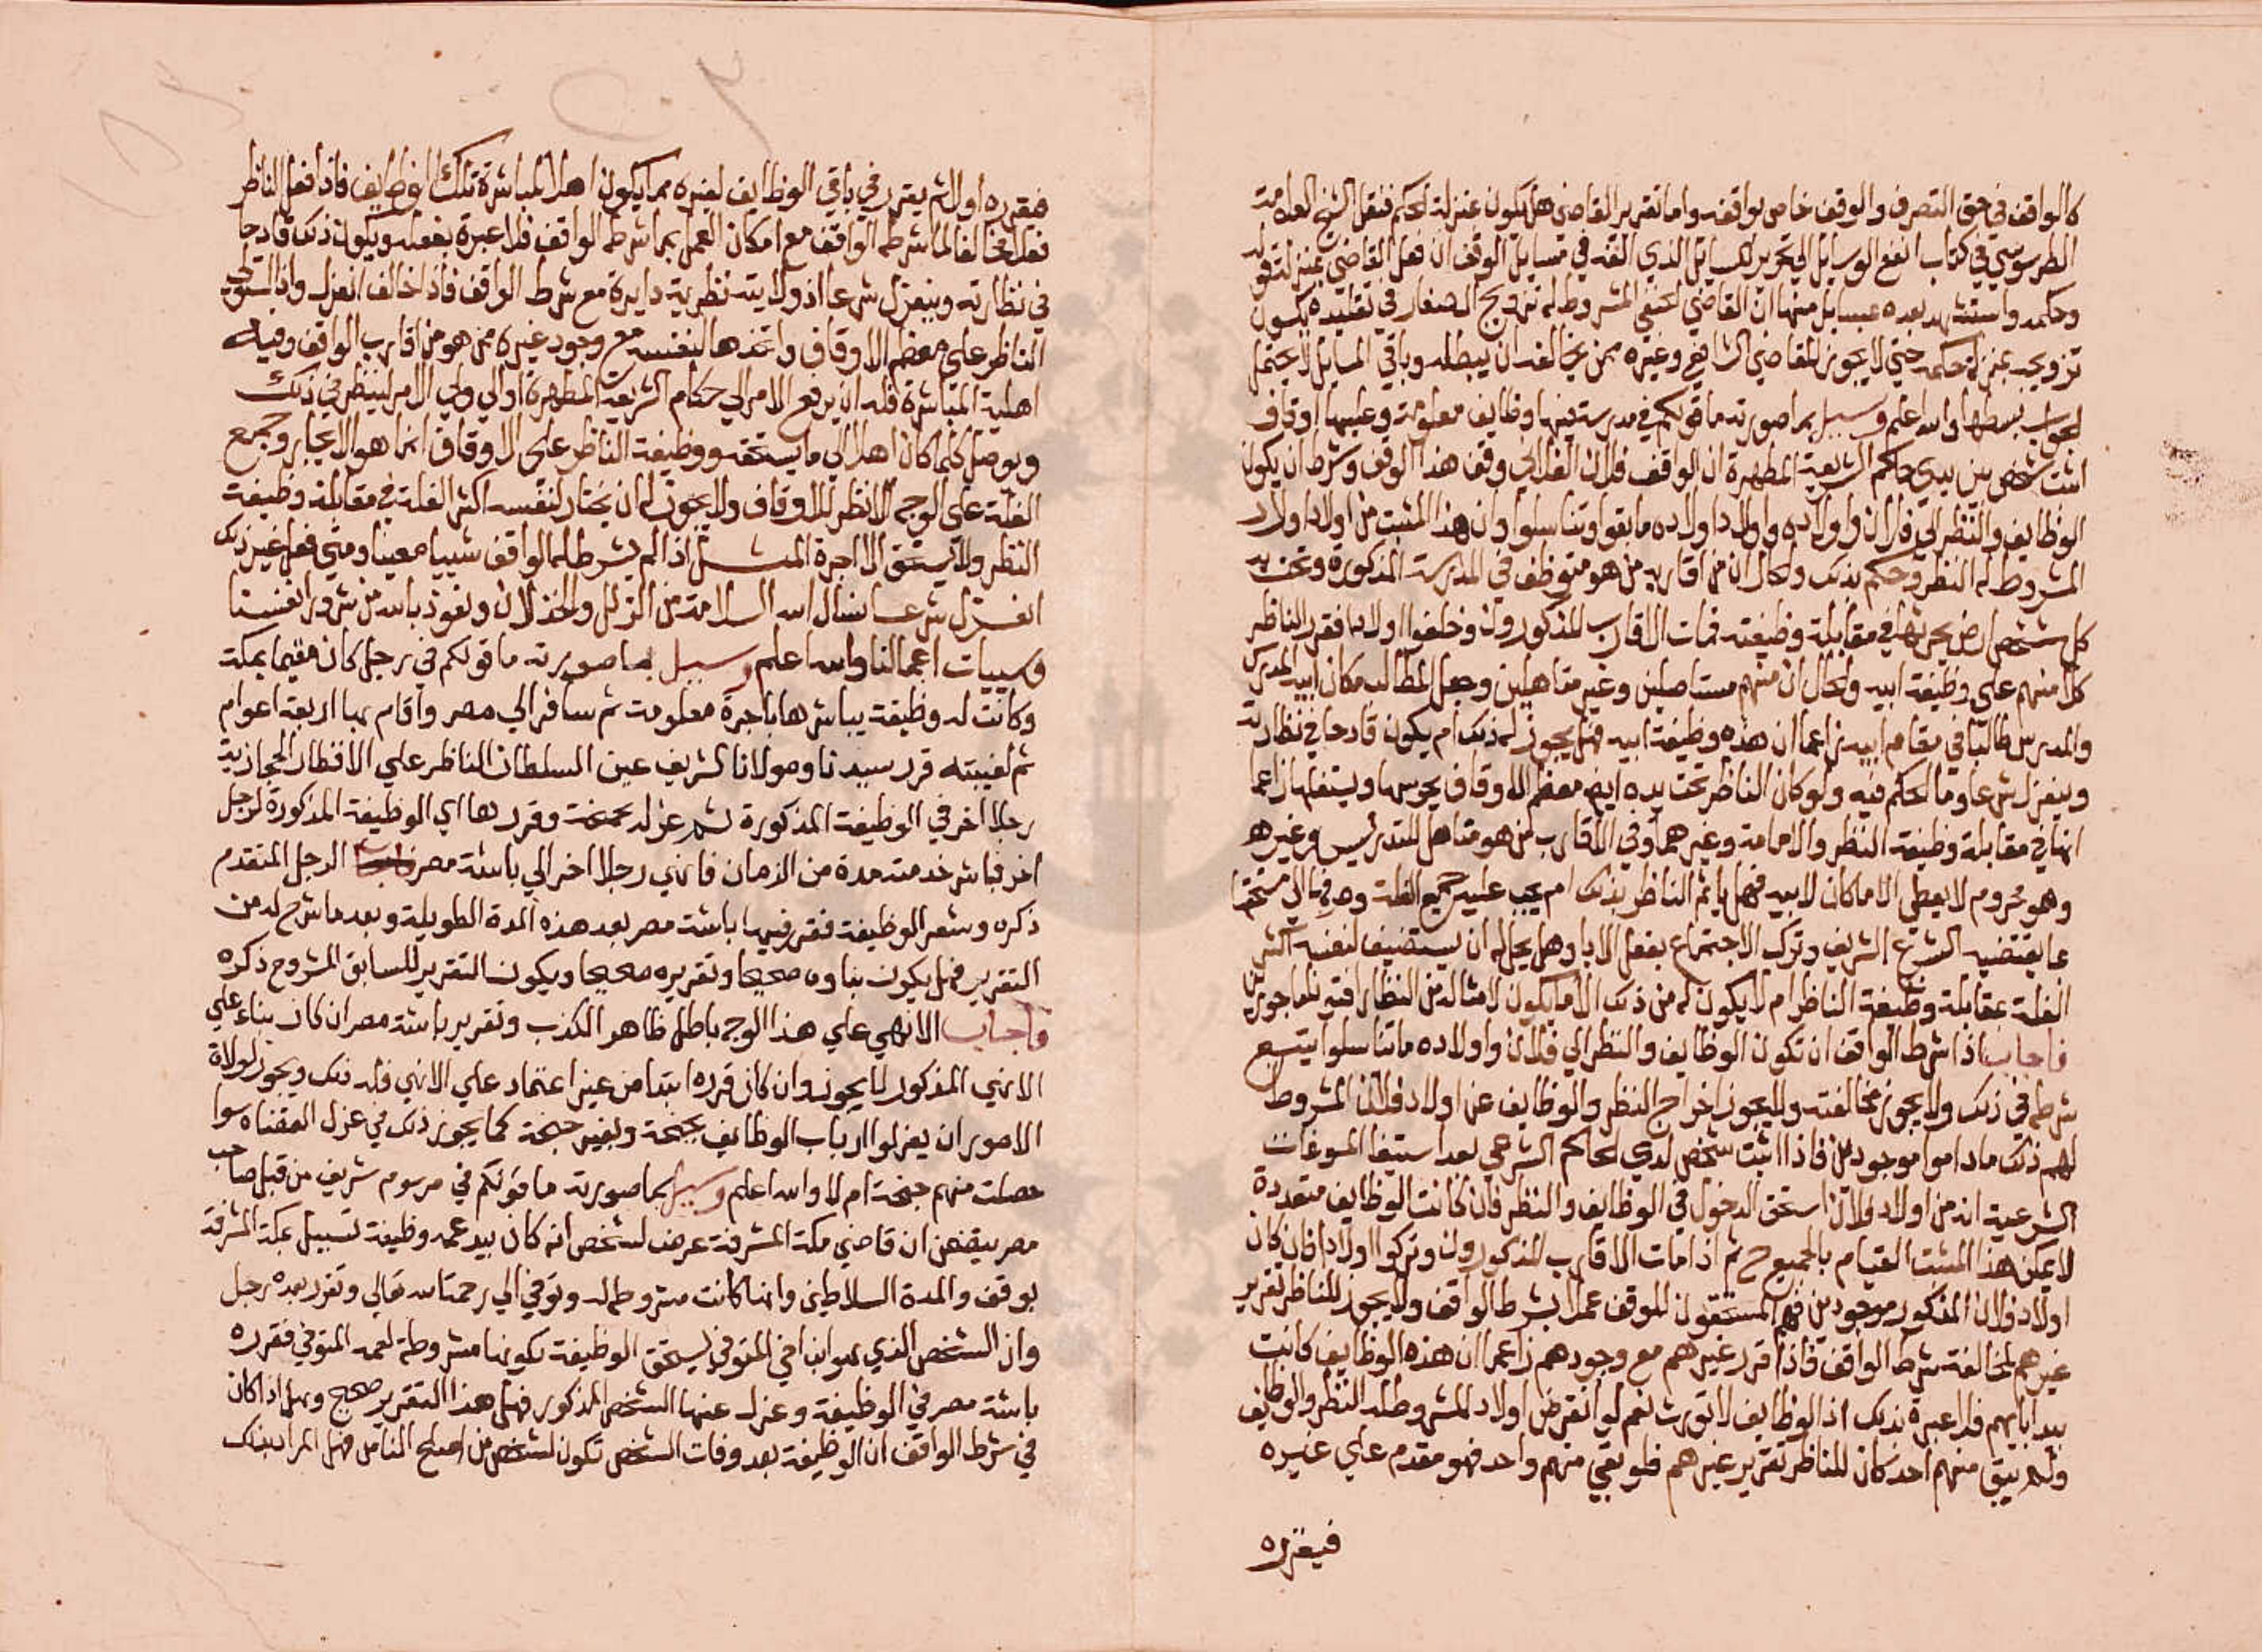 كالواقف في حق التصرف والوقف خاص بواقفه واما تقرير القاضي هل يكون بمنزلة الحكم فنقل الشيخ العلامة
الطرسوسي في كتاب انفع الوسايل الي تحرير المسايل الذي الفه في مسايل الوقف ان فعل القاضي بمنزلة قوله
وحكمه واستشهد بعده بمسايل منها ان القاضي الحنفي المشروط له تزويج الصغار في تقليده يكون
تزويجه بمنزلة حكمه حتي لا يجوز للقاضي الشافعي وغيره ممن يخالفه ان يبطله وباقي المسايل لا يحتمل
الجواب بسطها والله اعلم وسيل بما صورته ما قولكم في مدرسة فيها وظايف معلومة وعليها اوقاف
اثبت شخص بين يدي حاكم الشريعة المطهرة ان الواقف فلان الفلاني وقف هذا الوقف وشرط ان يكون
الوظايف والنظر الي فلان واولاده واولاد اولاده ما بقوا وتناسلوا وان هذا المثبت من اولاد اولاد
المشروط له النظر وحكم بذلك والحال ان من اقاربه من هو متوظف في المدرسة المذكورة وتحت يد
كل شخص ارض يحرثها في مقابلة وظيفته فمات الاقارب المذكورون وخلفوا اولادا فقرر الناظر
كلا منهم علي وظيفة ابيه والحال ان منهم مستاصلين وغير متاهلين وجعل الطالب مكان ابيه المدرس
والمدرس طالبا في مقام ابيه زاعما ان هذه وظيفة ابيه فهل يجوز له ذلك ام يكون قادحا في نظارته
وينعزل شرعا وما الحكم فيه ولو كان الناظر تحت يده ايضا معظم الاوقاف يحرسها ويستغلها زاعما
انها في مقابلة وظيفة النظر والامامة وغيرهما وفي الاقارب من هو متاهل للتدريس وغيره
وهو محروم لا يعطي الا ما كان لابيه فهل ياثم الناظر بذلك ام يجب عليه جميع الغلة وصرفها الي مستحقها
علي ما يقتضيه الشرع الشريف وترك الاجتماع بفعل الابا وهل يحل له ان يستضيف لنفسه اكثر
الغلة بمقابلة وظيفة الناظر ام لا يكون له من ذلك الا ما يكون لامثاله من النظار افتونا ماجورين
فاجاب اذا شرط الواقف ان تكون الوظايف والنظر الي فلان واولاده ما تناسلوا يتبع
شرطه في ذلك ولا يجوز مخالفته ولا يجوز اخراج النظر والوظايف عن اولاد فلان المشروط
لهم ذلك ما داموا موجودين فاذا اثبت شخص لدي الحاكم الشرعي بعد استيفا المسوغات
الشرعية انه من اولاد فلان استحق الدخول في الوظايف والنظر فان كانت الوظايف متعددة
لا يمكن هذا المثبت القيام بالجميع ح ثم اذا مات الاقارب المذكورون وتركوا اولادا فان كان
اولاد فلان المذكور موجودين فهم المستحقون للوقف عملا بشرط الواقف ولا يجوز للناظر تقرير
غيرهم لمخالفة شرط الواقف فاذا قرر غيرهم مع وجودهم زاعما ان هذه الوظايف كانت
بيد ابايهم فلا عبرة بذلك اذ الوظايف لا تورث نعم لو انقرض اولاد المشروط له النظر والوظايف
ولم يبق منهم احد كان للناظر تقرير غيرهم فلو بقي منهم واحد فهو مقدم علي غيره
فيقرره
فيقرره اولا ثم يقرر في باقي الوظايف لغيره مما يكون اهلا لمباشرة تلك الوظايف فاذا فعل الناظر
فعلا مخالفا لما شرطه الواقف مع امكان العمل بما شرطه الواقف فلا عبرة بفعله ويكون ذلك قادحا
في نظارته وينعزل شرعا اذ ولايته نظرية دايرة مع شرط الواقف فاذا خالف انعزل واذا استولي
الناظر علي معظم الاوقاف واتخذها لنفسه مع وجود غيره ممن هو من اقارب الواقف وفيه
اهلية المباشرة فله ان يرفع الامر الي حكام الشريعة المطهرة او الي ولي الامر لينظر في ذلك
ويوصل كلما كان اهلا الي ما يستحقه ووظيفة الناظر علي الاوقاف انما هو الايجار وجمع
الغلة علي الوجه الانظر للاوقاف ولا يجوز له ان يختار لنفسه اكثر الغلة في مقابلة وظيفة
النظر ولا يستحق الا اجرة المثل اذا لم يشرط له الواقف شييا معينا ومتي فعل غير ذلك
انعزل شرعا نسال الله السلامة من الزلل والخذلان ونعوذ بالله من شرور انفسنا
وسييات اعمالنا والله اعلم وسيل بما صورته ما قولكم في رجل كان مقيما بمكة
وكانت له وظيفة يباشرها باجرة معلومة ثم سافر الي مصر واقام بها اربعة اعوام
ثم لغيبته قرر سيدنا ومولانا الشريف عين السلطان الناظر علي الاقطار الحجازية
رجلا اخر في الوظيفة المذكورة ثم عزله بجنحة وقررها اي الوظيفة المذكورة لرجل
اخر فباشر خدمته مدة من الزمان فانهي رجلا اخر الي باشة مصر الرجل المتقدم
ذكره وشغر الوظيفة فقرر فيها باشت مصر بعد هذه المدة الطويلة وبعد ما شرح له من
التقرير فهل يكون بناوه صحيحا وتقريره صحيحا ويكون التقرير للسابق المشروح ذكره
فاجاب الانهي علي هذا الوجه باطل ظاهر الكذب وتقرير باشة مصر ان كان بناء علي
الانهي المذكور لا يجوز وان كان قرره ابتدا من غير اعتماد علي الانهي فله ذلك ويجوز لولاة
الامور ان يعزلوا ارباب الوظايف بجنحة وبغير جنحة كما يجوز ذلك في عزل القضاة سوا
حصلت منهم جنحة ام لا والله اعلم وسيل بما صورته ما قولكم في مرسوم شريف من قبل صاحب
مصر يتضمن ان قاضي مكة المشرفة عرض لشخص انه كان بيد عمه وظيفة تسبيل بمكة المشرفة
بوقف والمدة السلاطين وانها كانت مشروطة له وتوفي الي رحمة الله تعالي وتقرر بعده رجل
وان الشخص الذي هو ابن اخي المتوفي يستحق الوظيفة لكونها مشروطة لعمه المتوفي فقرره
باشة مصر في الوظيفة وعزل عنها الشخص المذكور فهل هذا التقرير صحيح وهل اذا كان
في شرط الواقف ان الوظيفة بعد وفات الشخص تكون لشخص من اصلح الناس فهل المراد بذلك